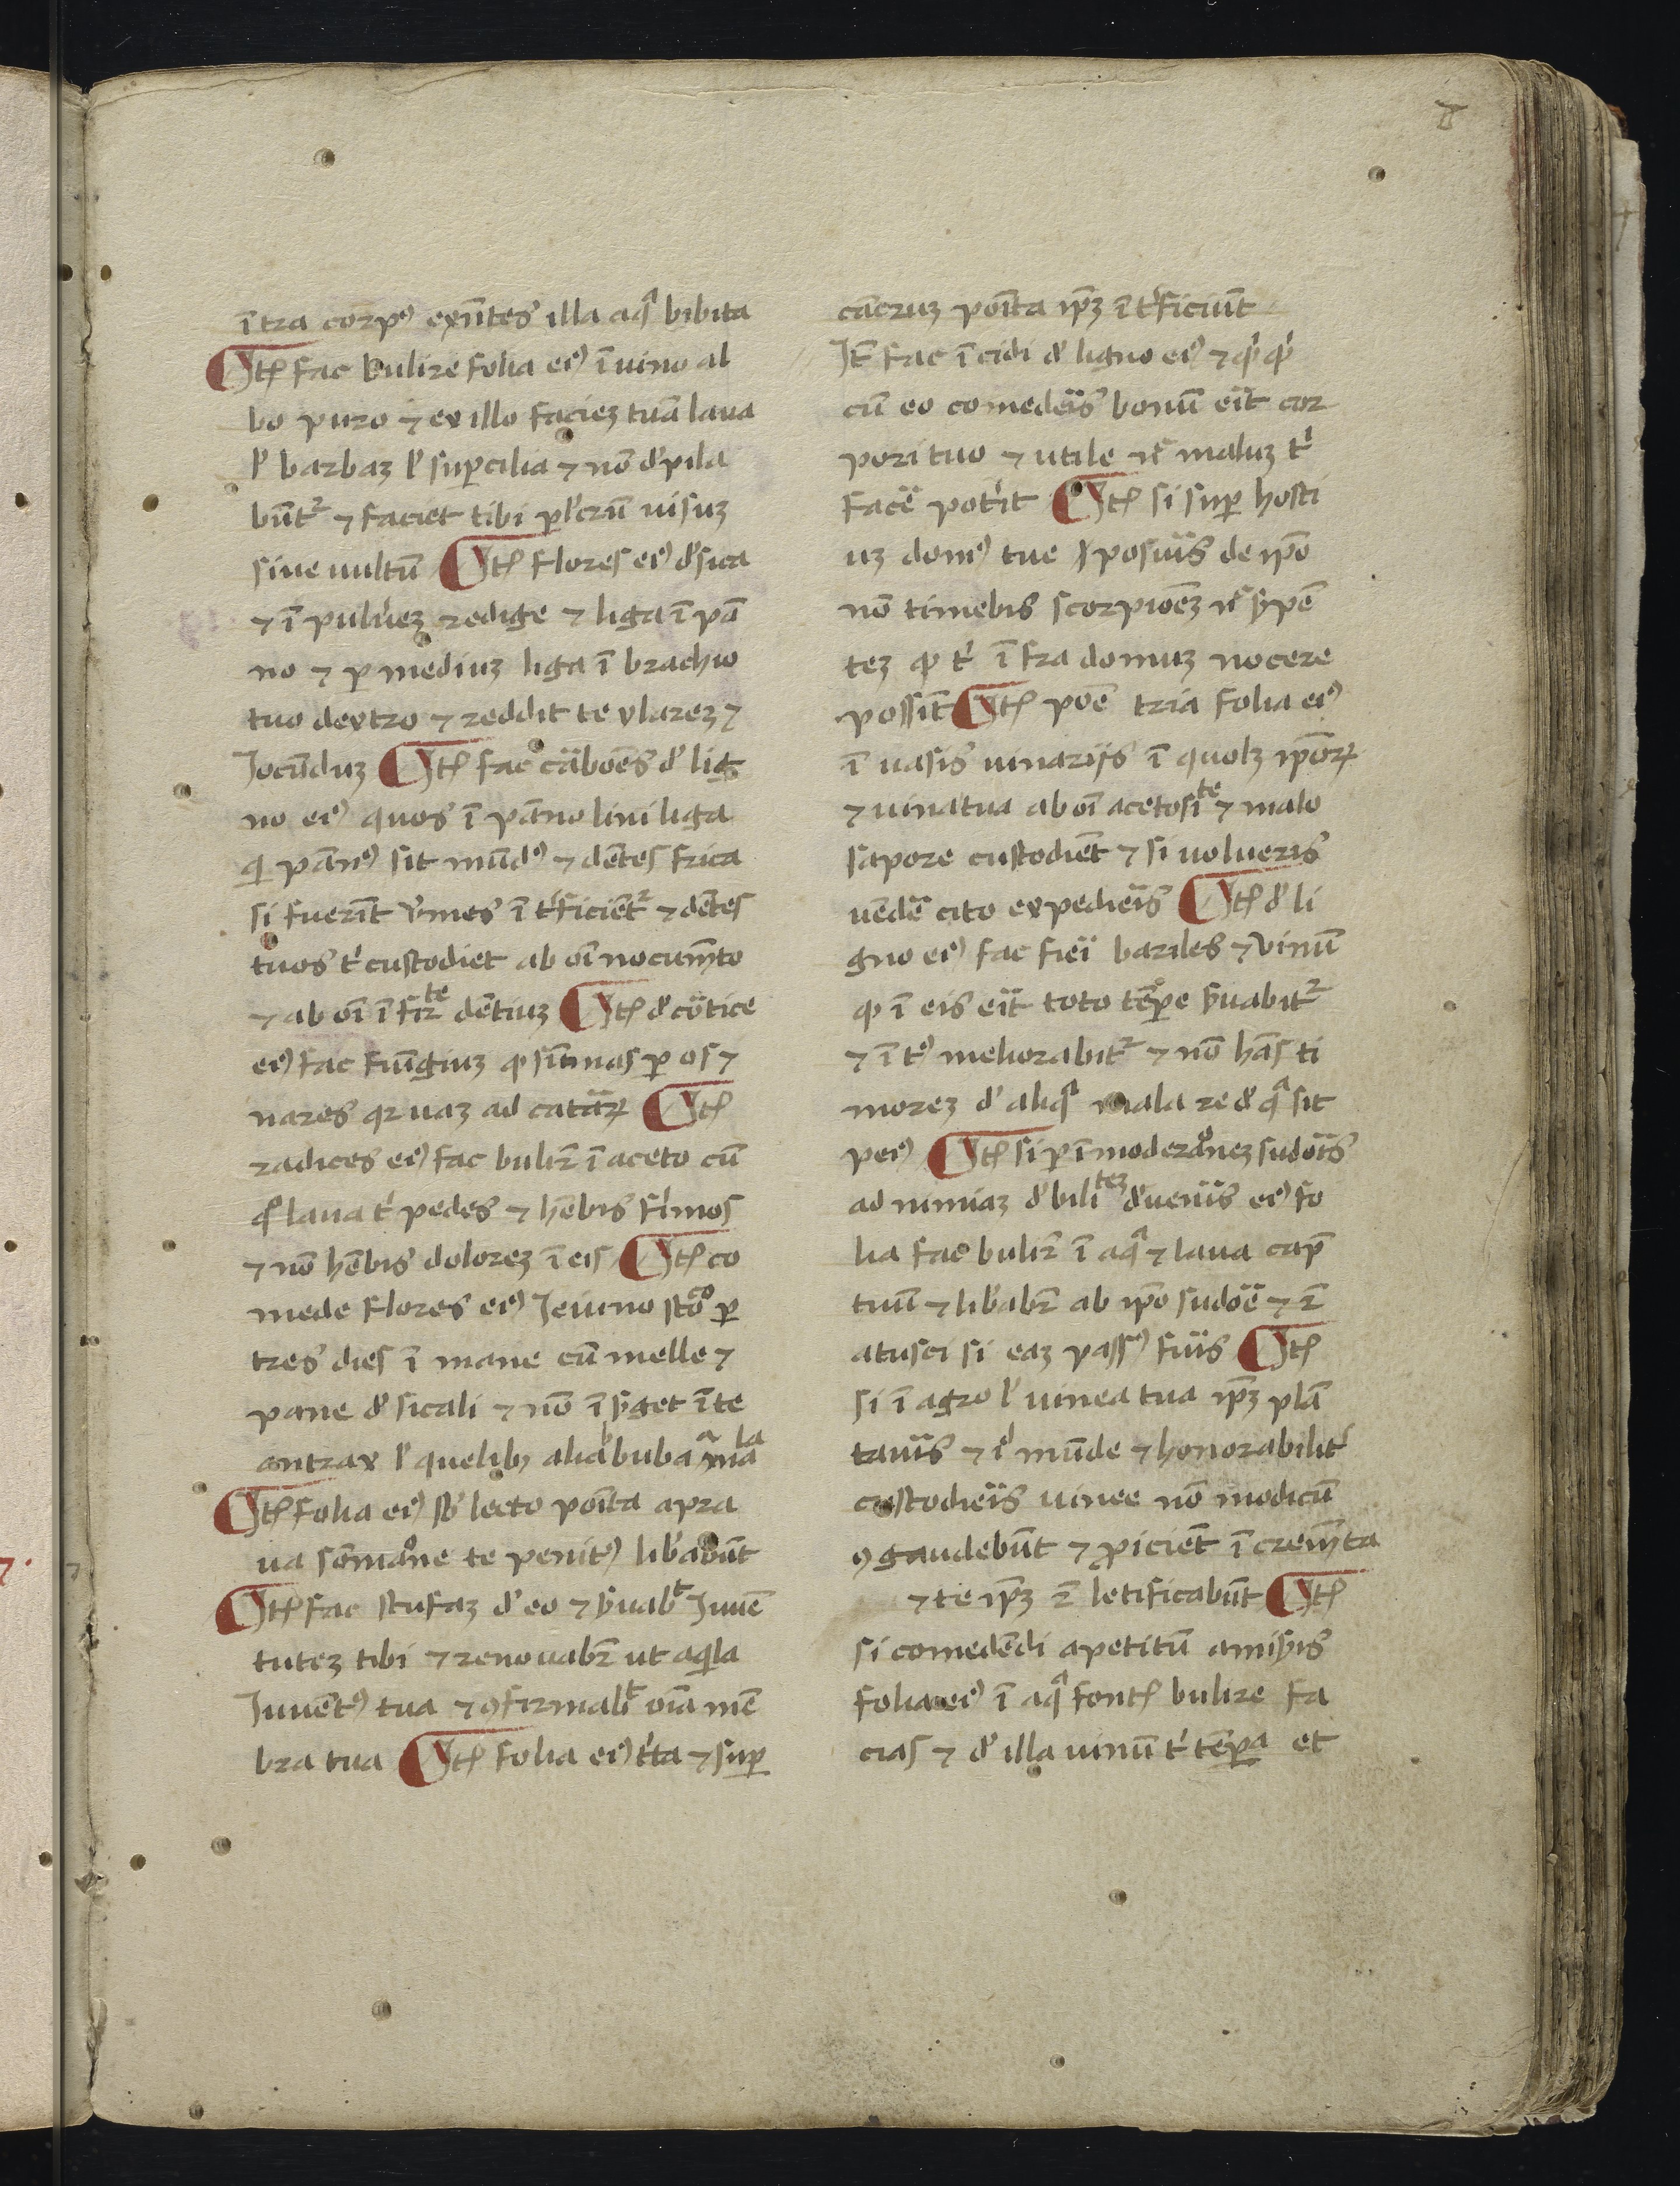 ītra corpꝰ exn̄tes illa aqᵃ bibita
Itꝫ fac bulire folia eiꝰ ī uino al
bo puro ⁊ ex illo facieꝫ tuā laua
l' barbaꝫ l' suꝑcilia ⁊ nō d'pila
būtᷣ ⁊ faciet tibi pl'crū uisuꝫ
siue uultū Itꝫ flores eiꝰ d'sica
⁊ ī pulu'eꝫ redige ⁊ liga ī pā
no ⁊ ꝑ mediuꝫ liga ī brachio
tuo dextro ⁊ reddit te ylareꝫ ⁊
Jocūduꝫ Itꝫ fac cāboēs d' lig
no eiꝰ quos ī pāno lini liga
qi pānꝰ sit mūdꝰ ⁊ dētes frica
si fuerīt v'mes ī t'ficiētᷣ ⁊ dētes
tuos t' custodiet ab oī nocum̄to
⁊ ab oī ī firᵗᵉ dētiuꝫ Itꝫ d' cōtice
eiꝰ fac fuīgiuꝫ qd sūmas ꝑ os ⁊
nares qr uaꝫ ad catāꝝ Itꝫ
radices eiꝰ fac bulir̄ ī aceto cū
qº laua t' pedes ⁊ hēbis f'imos
⁊ nō hēbis doloreꝫ ī eis Itꝫ co
mede flores eiꝰ Jeiuno stōº ꝑ
tres dies ī mane cū melle ⁊
pane d' sicali ⁊ nō ī s'get ī te
antrax l' quelibꝫ alia buba maᵃ ˡᵃ
Itꝫ folia eiꝰ sb' lecto poīta apra
ua sōmaºne te penitꝰ lib'abūt
Itꝫ fac stufaꝫ d' eo ⁊ s'uabᵗ Juuē
tuteꝫ tibi ⁊ renouabᵗ ut aqⁱla
Juuētꝰ tua ⁊ ꝯfirmabᵗ oīa mē
bra tua Itꝫ folia eiꝰ t'ta ⁊ suꝑ
cācruꝫ poīta ip̄ꝫ ī t'ficiūt
Jt̄ fac ī cidi d' ligno eiꝰ ⁊ qⁱ qⁱ
cū eo comedeīs bonū eīt cor
pori tuo ⁊ utile n̄ maluꝫ t'
facē pot'it Itꝫ si suꝑ hosti
uꝫ domꝰ tue posuīs de ip̄o
nō timebis scorpioēꝫ n̄ s'pē
teꝫ qd t' ī fra domuꝫ nocere
possīt Itꝫ poē tria folia eiꝰ
ī uasis uinarijs ī quolꝫ ip̄oꝝ
⁊ uina tua ab oī acetosiᵗᵉ ⁊ malo
sapore custodiēt ⁊ si uolueris
uēdē cito expedieīs Itꝫ d' li
gno eiꝰ fac fieī bariles ⁊ vinū
qd ī eis eīt toto tēꝑe s'uabitᷣ
⁊ ī tꝰ meliorabitᷣ ⁊ nō hās ti
moreꝫ d' aliqᵃ mala re d' qᵃ sit
peiꝰ Itꝫ si ꝑ īmoderaºneꝫ sudoīs
ad nimiaꝫ d'biliᵗᵉꝫ d'uenīs eiꝰ fo
lia fac bulir̄ ī aqᵃ ⁊ laua cap̄
tuū ⁊ lib'abr̄ ab ip̄o sudoē ⁊ ē
a tusci si eaꝫ passꝰ fuīs Itꝫ
si ī agro l' uinea tua ip̄ꝫ plā
tauīs ⁊ iᵈ mūde ⁊ honorabilit'
custodieīs uinee nō modicū
ꝯgaudebūt ⁊ ꝓicient ī crem̄ta
⁊ te ip̄ꝫ ē letificabūt Itꝫ
si comedēdi apetitū amis'is
folia eiꝰ ī aqᵃ fontꝫ bulire fa
cias ⁊ d' illa uinū t' tēꝑa et